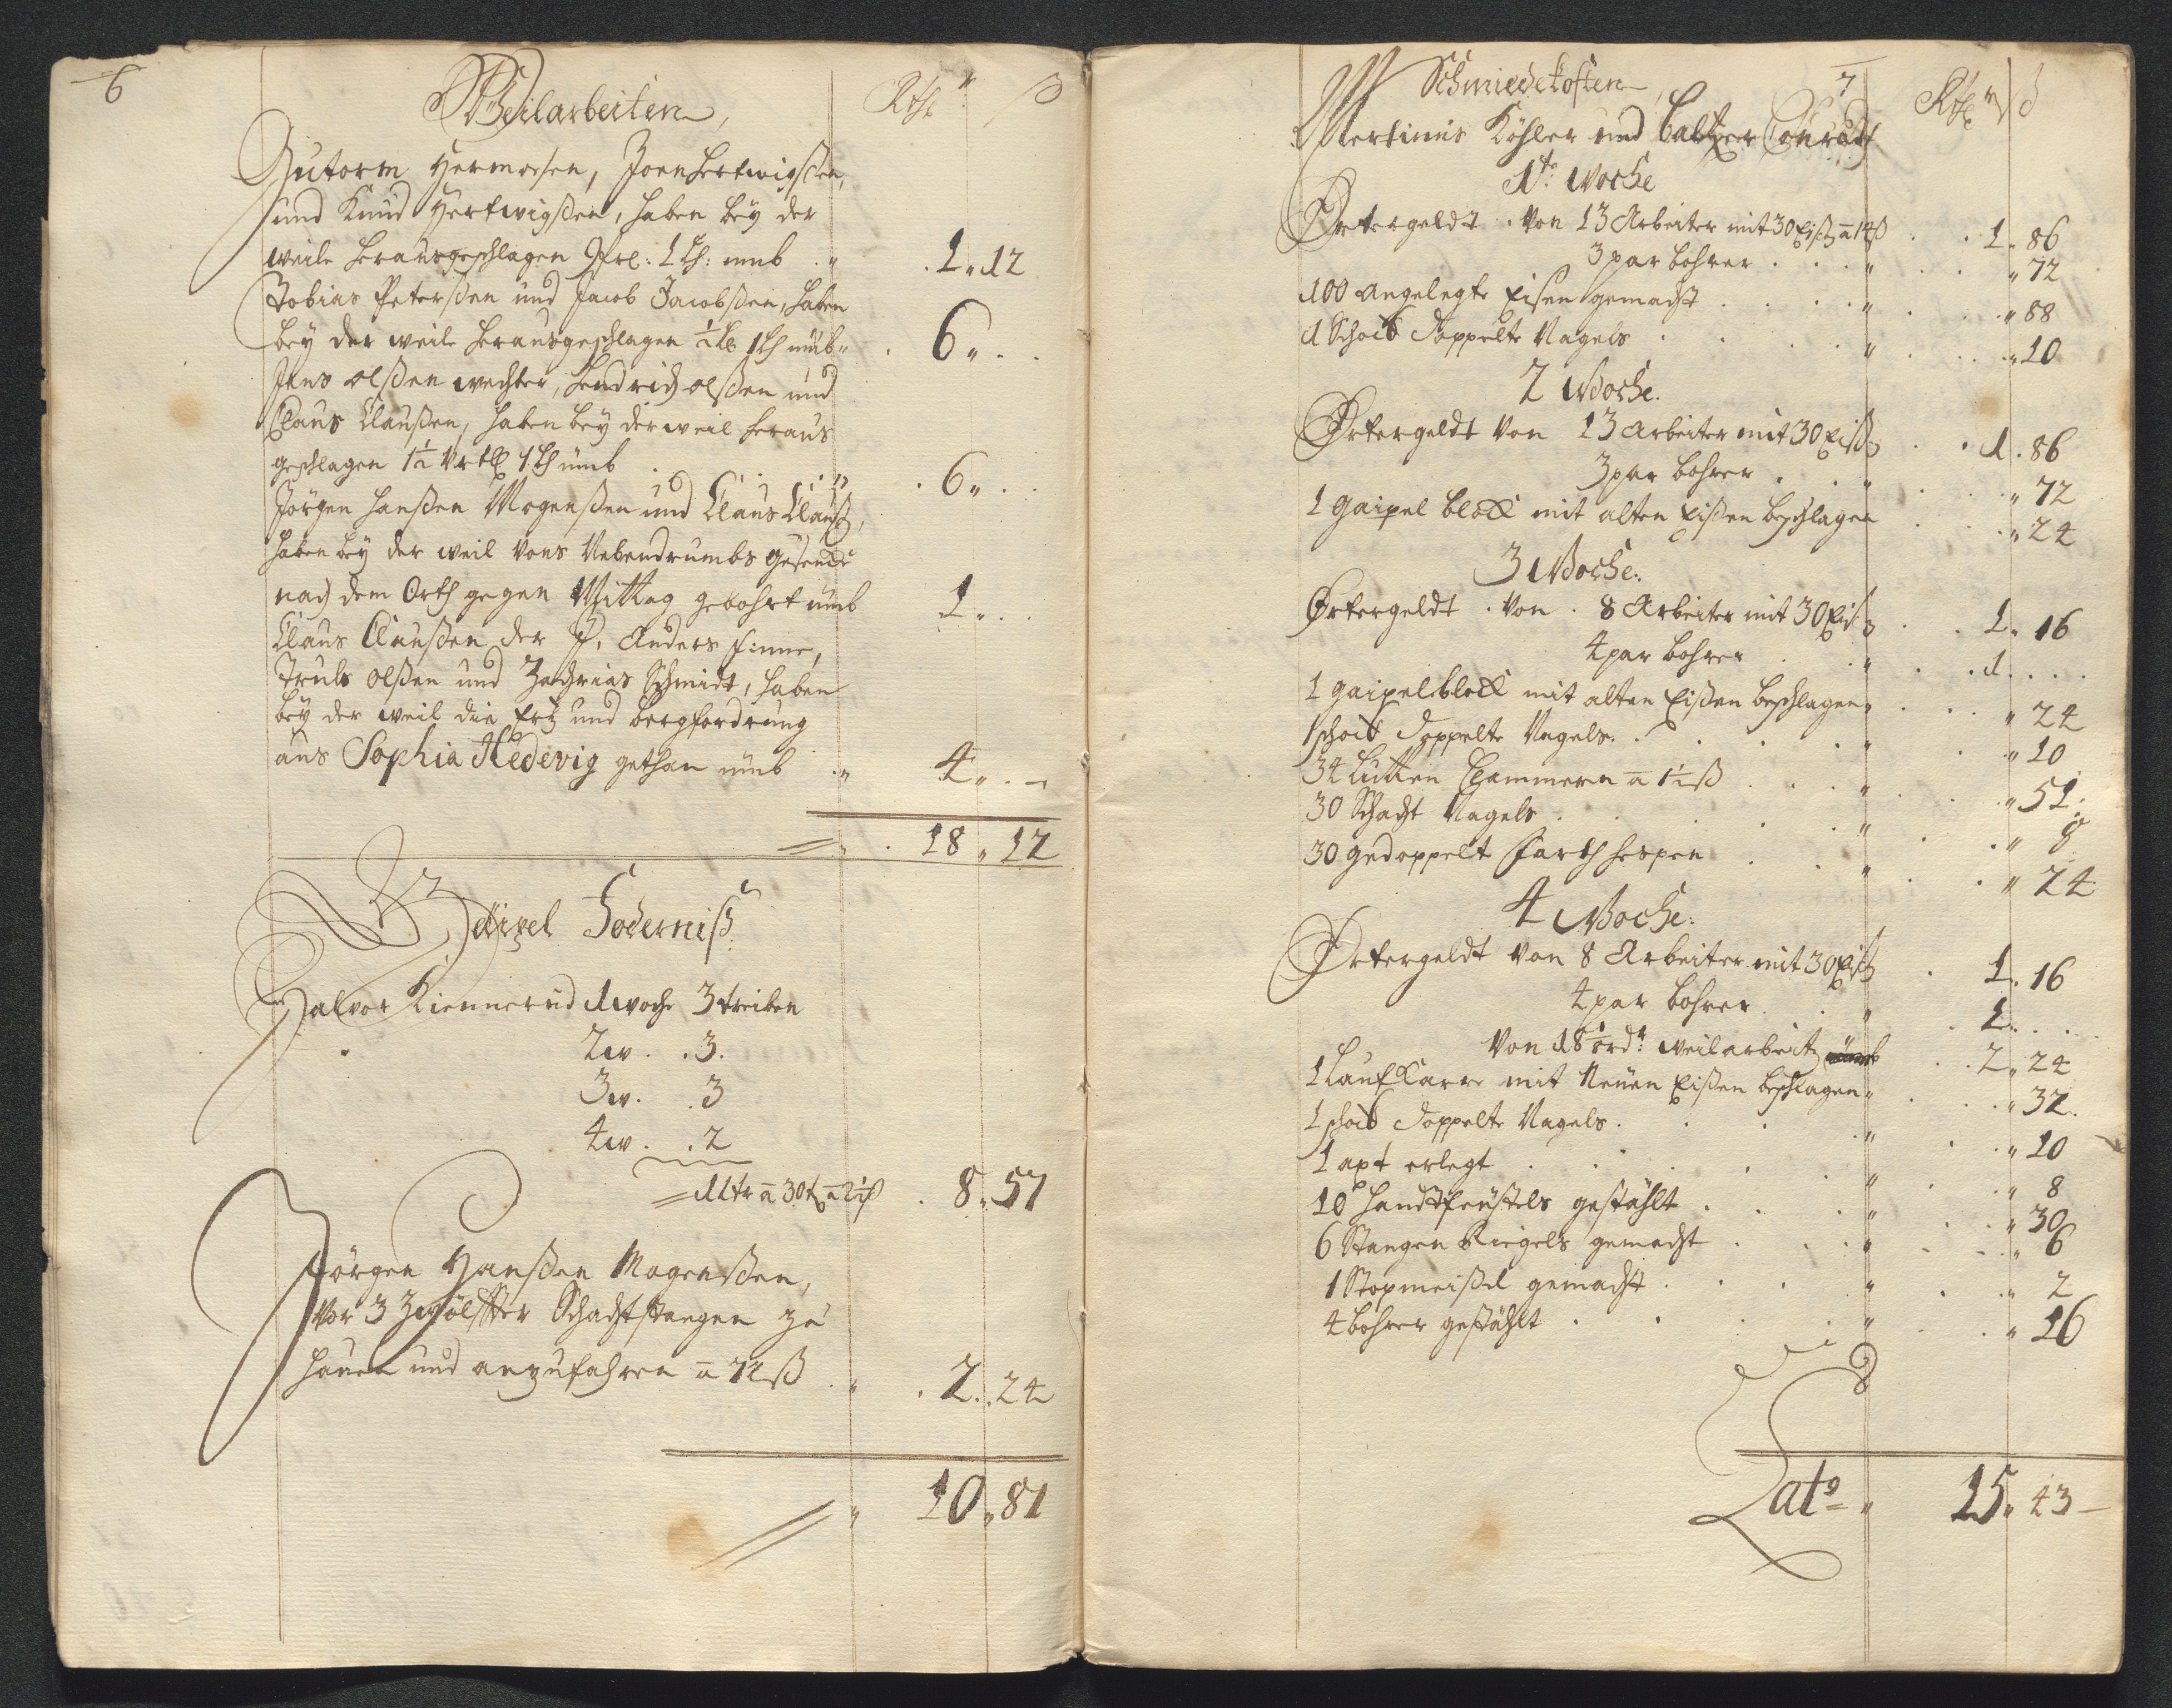 6
Weilarbeiten,
Rthl ß
Gutorm Hermoesen, Joen Hertwigßen,
und Knud Hertwigßen, haben bey der
weile herausgeschlagen 1 Lh: umb 1 „ 12
Tobias Peterßen und Jacob Jacobßen, haben
bey der weile herausgeschlagen 1/2 1 Lh umb „ 6 „
Jens olßen wechter, Hendrich olßen und
Claus Claußen, haben bey der weil heraus
geschlagen 1 1/2 1 Lh umb „ 6 „
Jörgen Hanßen Mogenßen und Claus Clauß,
haben bey der weil Vons Nebendrumbs
nach dem Orth gegen Mittag gebohrt umb 1 „
Claus Claußen der J. Anders Finne,
Truls olßen und Zachrias Schmidt, haben
bey der weil die Ertz und bergfordrung
aus Sophia Hedevig gethan umb „ 4 „ –
„ 18 „ 12
Geipel Foderniß
Halvor Kiennerud 1 woche 3 treiben
2 w. . 3.
3 w. . 3
4 w. . 2
11 tr a 30 t a 2 1/2 ß 8 „ 57
Jörgen Hanßen Mogenßen,
Vor 3 Zwölffter Schachtstangen zu
hauen und anzufahren a 72 ß „ 2 „ 24
„ 10 „ 81
7
Schmiedekosten,
Rthl ß
Mertinis Köhler und Baltzer Conradt
1te Woche
Örtergeldt von 13 Arbeiter mit 30 Eiß a 14 ß 1 „ 86
3 par bohrer „ „ 72
100 angelegte Eisen gemacht „ „ 88
1 Schock doppelte Nagels „ „ 10
2 Woche.
Örtergeldt Von 13 Arbeiter mit 30 Eiß 1 . 86
3 par bohrer „ „ 72
1 gaipel block mit alten Eißen beschlagen „ 24
3 Woche.
Örtergeldt Von 8 Arbeiter mit 30 Eiß 1 „ 16
4 par bohrer „ 1
1 gaipelblock mit alten Eißen beschlagen „ „ 24
1 schock doppelte Nagels „ „ 10
34 Lutten Clammern a 1 1/2 ß „ „ 51
30 Schacht Nagels „ „ 8
30 gedoppelt Farth hespen „ „ 24
4 Woche.
Örtergeldt Von 8 Arbeiter mit 30 Eiß 1 . 16
4 par bohrer „ 1
Von weilarbeit 2 „ 24
1 Lauf Karre mit Neuen Eißen beschlagen „ „ 32
1 schock doppelte Nagels „ „ 10
1 axt erlegt „ „ 8
10 Handtfeustels gestählt „ „ 30
6 Stangen Riegels gemacht „ „ 6
1 Stopmeißel gemacht „ „ 2
4 bohrer gestählt „ „ 16
Lato „ 15 „ 43 –